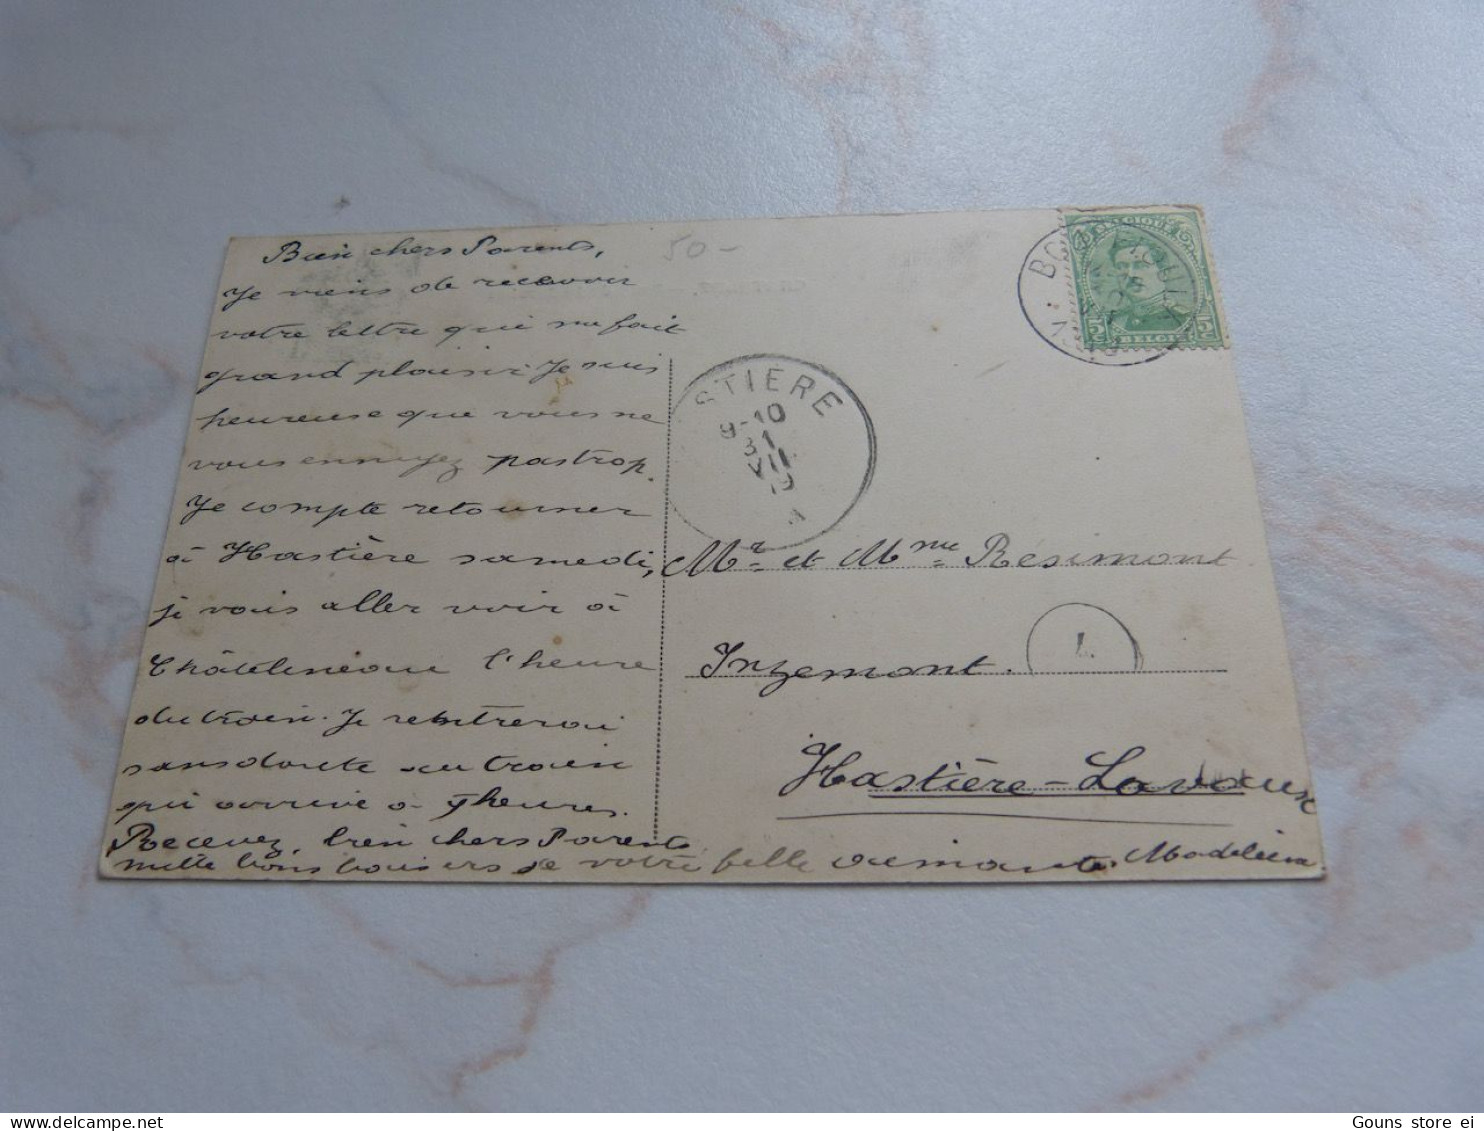 Bien chers Parents,
Je viens de recevoir
votre lettre qui me fait
grand plaisir. Je suis
heureuse que vous ne
vous ennuyez pas trop.
Je compte retourner
à Hastière samedi,
je vais aller voir à
Châtelineau l'heure
du train. Je rentrerai
sans doute au train
qui arrive à 9 heures.
Recevez, bien chers Parents,
mille bons baisers de votre fille aimante. Madeleine
50-
STIÈRE
9-10
31
VII
BELGIQUE
5c 5c
BELGIË
Mr et Mme Résimont
Inzemont.
Hastière-Lavaux
Gouns store ei